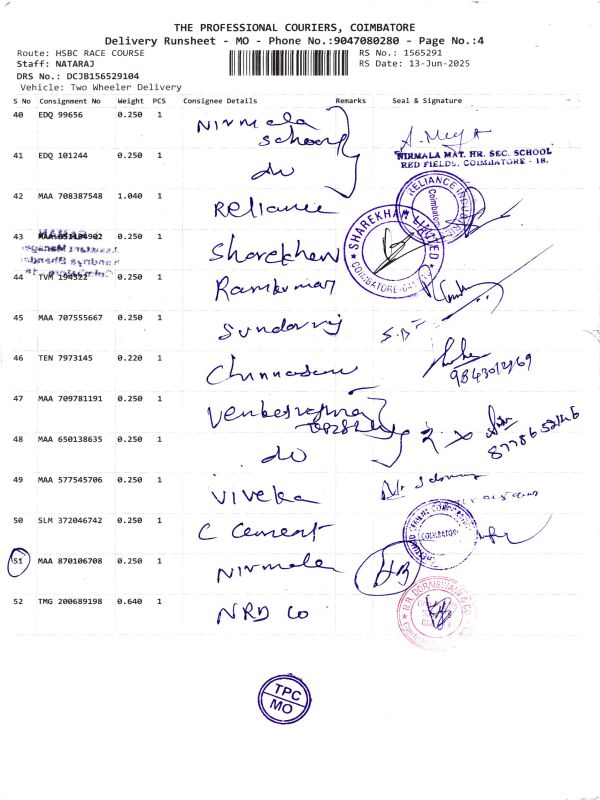 THE PROFESSIONAL COURIERS, COIMBATORE
Delivery Runsheet - MO - Phone No.:9047080280 - Page No.:4
Route: HSBC RACE COURSE
RS No.: 1565291
Staff: NATARAJ
RS Date: 13-Jun-2025
DRS No.: DCJB156529104
Vehicle: Two Wheeler Delivery
S No Consignment No Weight PCS Consignee Details Remarks Seal & Signature
40 EDQ 99656 0.250 1 Nirmala
School
NIRMALA MAT. HR. SEC. SCHOOL
RED FIELDS, COIMBATORE - 18.
41 EDQ 101244 0.250 1 do
42 MAA 708387548 1.040 1 Reliance
RELIANCE
Coimbatore
43 MAA 0.250 1 Sharekhan
SHAREKHAN LIMITED
COIMBATORE
44 TVM 0.250 1 Ramkumar
45 MAA 707555667 0.250 1 Sundarraj
46 TEN 7973145 0.220 1
47 MAA 709781191 0.250 1
48 MAA 650138635 0.250 1 do
49 MAA 577545706 0.250 1 Viveka
50 SLM 372046742 0.250 1 C Cement
51 MAA 870106708 0.250 1 Nirmala
HB
52 TMG 200689198 0.640 1 NRD CO
TPC
MO